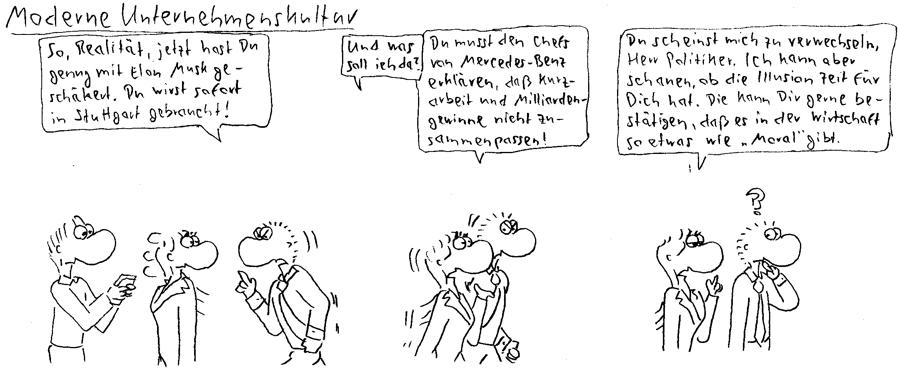 Moderne Unternehmenskultur
So, Realität, jetzt hast Du
genug mit Elon Musk ge-
schäkert. Du wirst sofort
in Stuttgart gebraucht!
Und was
soll ich da?
Du musst den Chefs
von Mercedes-Benz
erklären, daß Kurz-
arbeit und Milliarden-
gewinne nicht zu-
sammenpassen!
Du scheinst mich zu verwechseln,
Herr Politiker. Ich kann aber
schauen, ob die Illusion Zeit für
Dich hat. Die kann Dir gerne be-
stätigen, daß es in der Wirtschaft
so etwas wie „Moral" gibt.
?